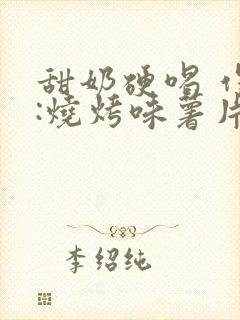 甜奶硬唱
:燒烤味薯片
李绍纯